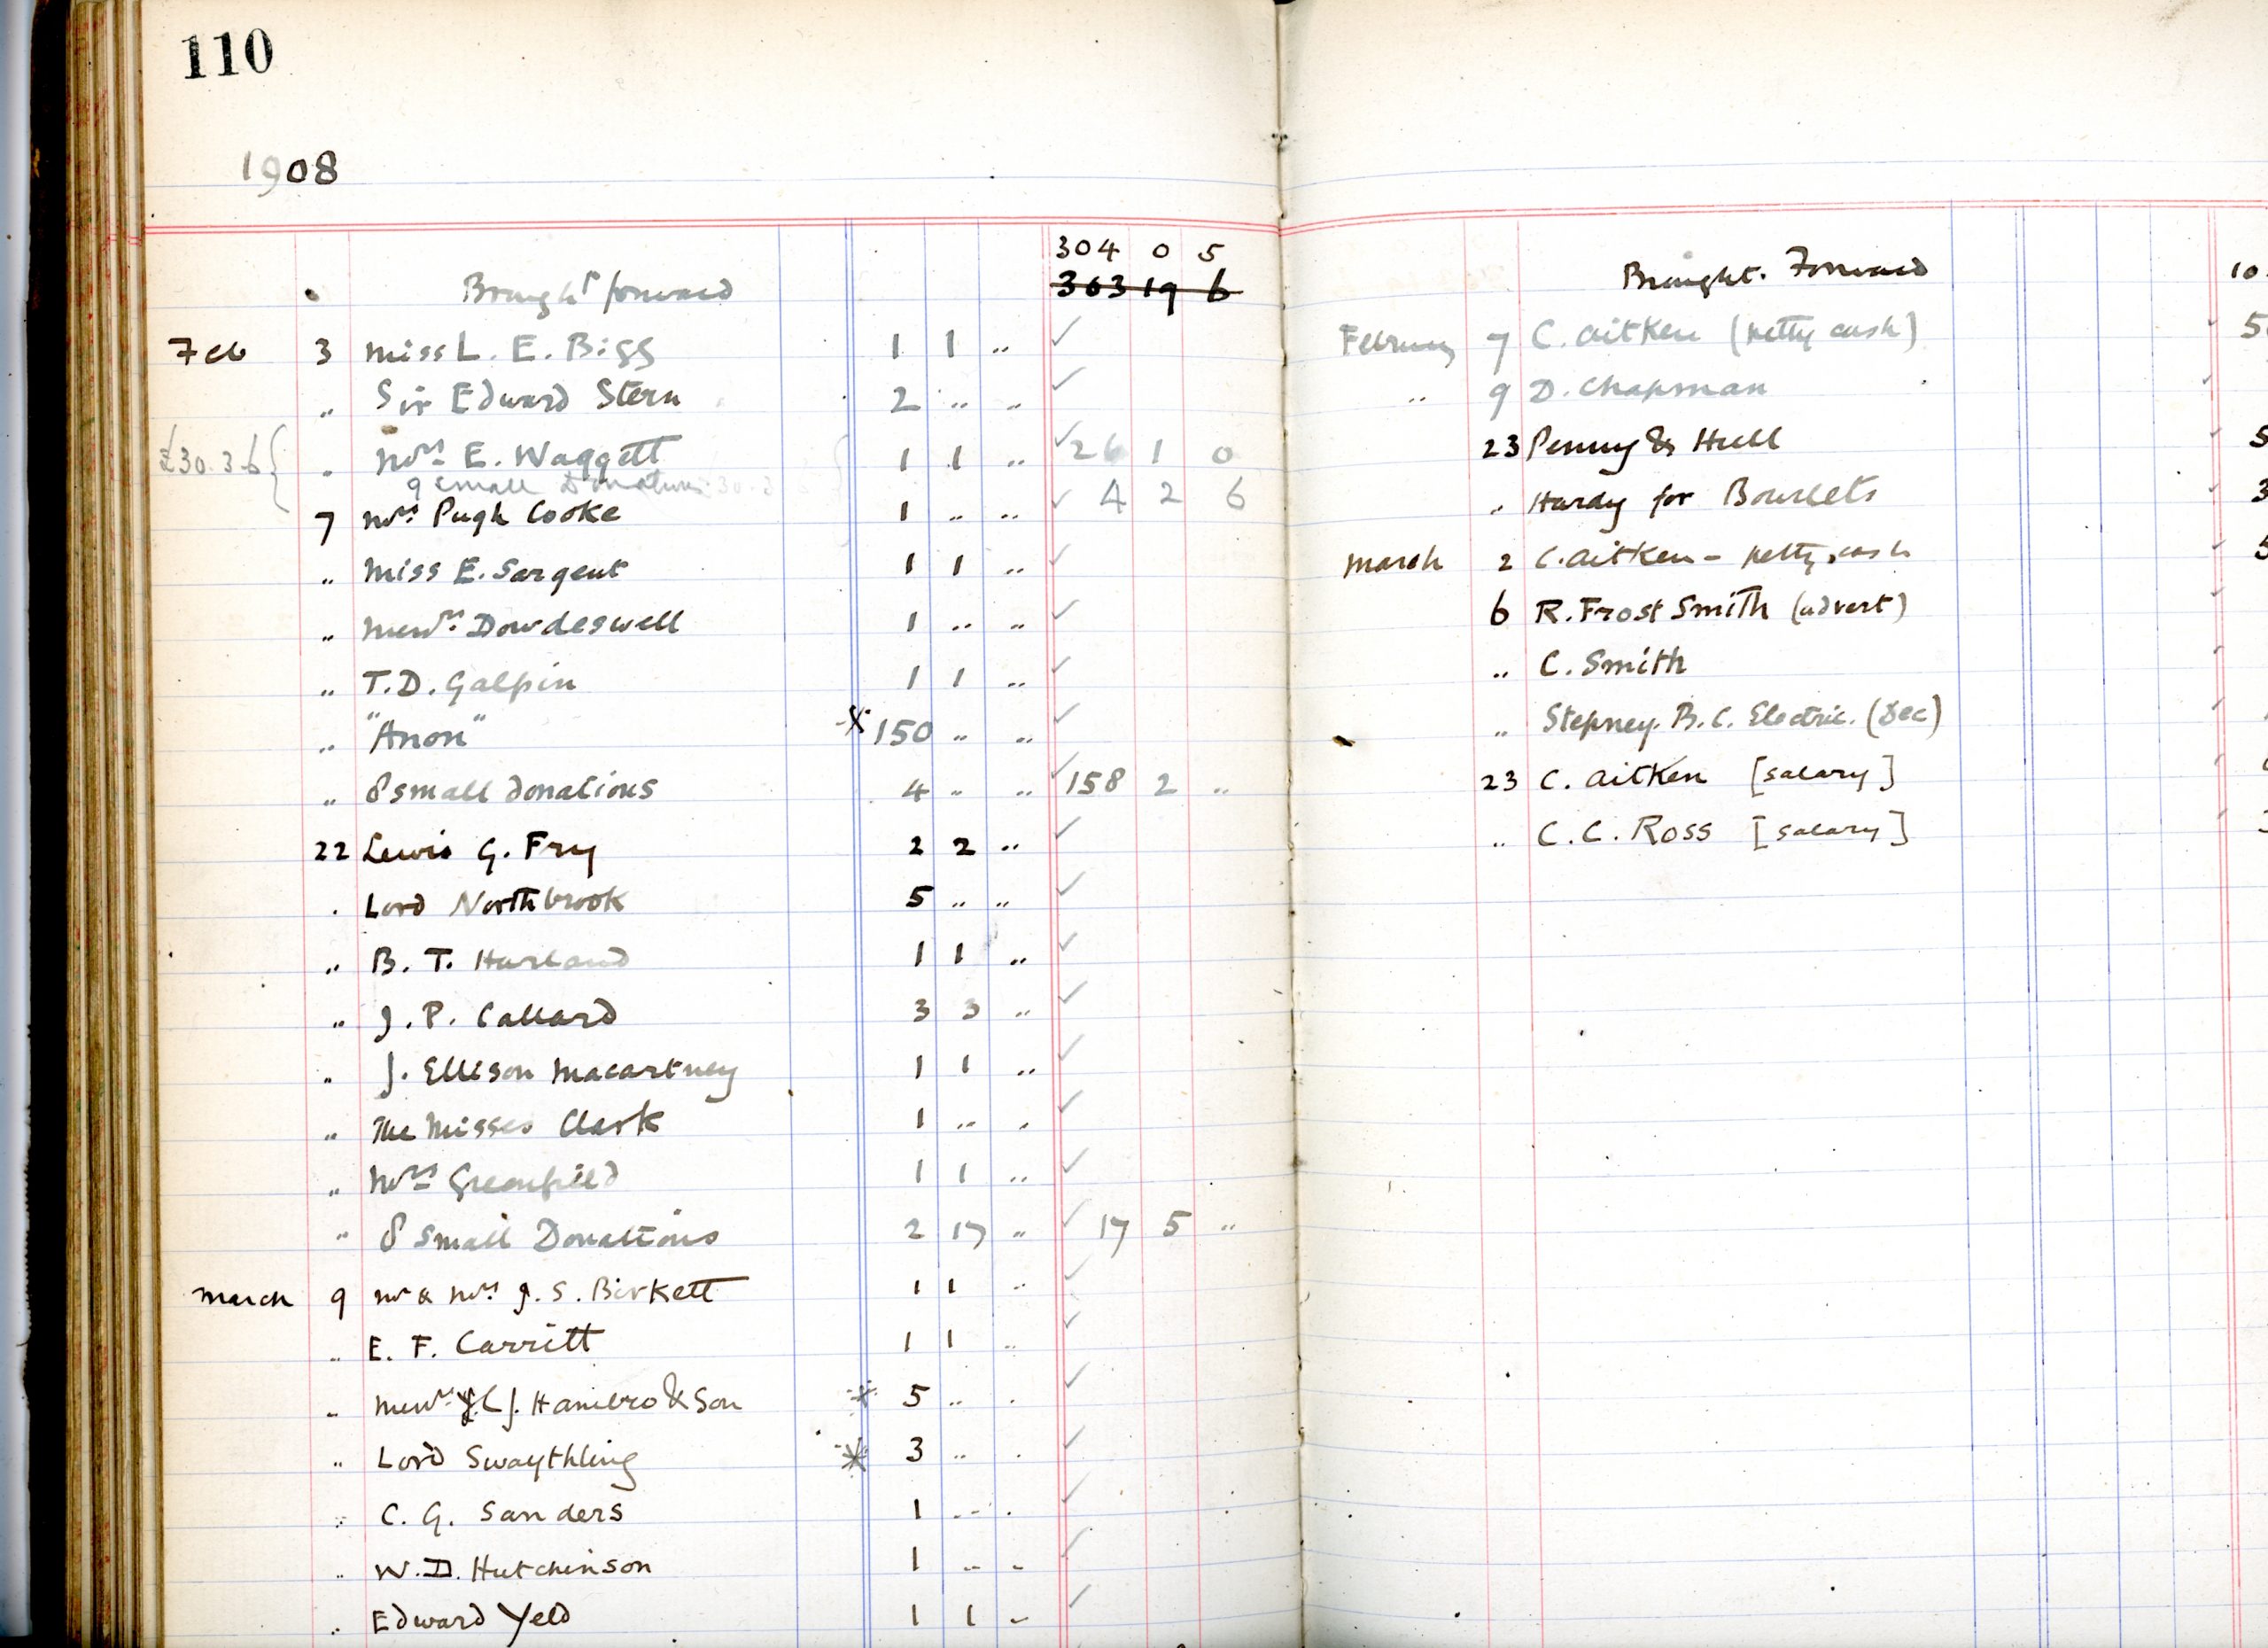 110
1908
304 0 5
Brought forward 303 19 6
Feb 3 Miss L. E. Bigg 1 1 ..
" Sir Edward Stern 2 .. ..
£30.3.6 { " Mrs E. Waggett 1 1 .. 26 1 0
9 small Donations 30.3.6 4 2 6
7 Mrs Pugh Cooke 1 .. ..
" Miss E. Sargent 1 1 ..
" Messrs Dowdeswell 1 .. ..
" T.D. Galpin 1 1 ..
" "Anon" X 150 .. ..
" 8 small donations 4 .. .. 158 2 ..
22 Lewis G. Fry 2 2 ..
" Lord Northbrook 5 .. ..
" B. T. Harland 1 1 ..
" J. P. Callard 3 3 ..
" J. Ellison Macartney 1 1 ..
" The Misses Clark 1 .. .
" Mrs Greenfield 1 1 ..
" 8 Small Donations 2 17 .. 17 5 ..
March 9 Mr & Mrs J. S. Birkett 1 1 ..
" E. F. Carritt 1 1 ..
" Messrs C. J. Hambro & Son * 5 .. .
" Lord Swaythling * 3 .. .
" C. G. Sanders 1 .. .
" W. D. Hutchinson 1 .. -
" Edward Yeld 1 1 -
Brought Forward 10
February 7 C. Aitken (petty cash) 5
" 9 D. Chapman
23 Penny & Hull 5
" Hardy for Bourlets 3
March 2 C. Aitken - petty cash 5
6 R. Frost Smith (advert)
" C. Smith
" Stepney B. C. Electric. (Dec)
23 C. Aitken [salary]
" C. C. Ross [salary]